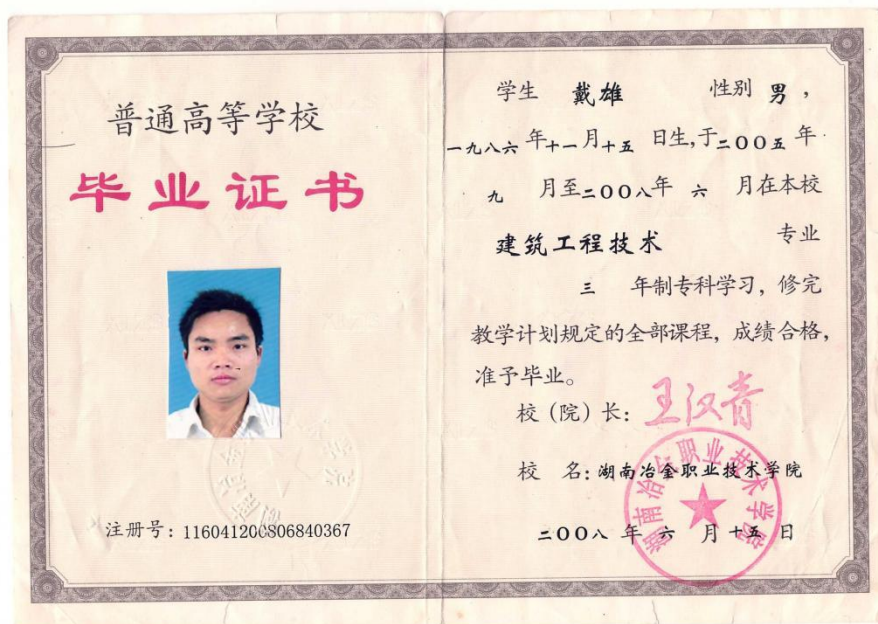 普通高等学校
毕业证书
注册号：116041200806840367
学生 戴雄 性别 男，
一九八六年十一月十五日生，于二〇〇五年
九月至二〇〇八年六月在本校
建筑工程技术 专业
三年制专科学习，修完
教学计划规定的全部课程，成绩合格，
准予毕业。
校（院）长：王汉青
校 名：湖南冶金职业技术学院
湖南冶金职业技术学院
二〇〇八年六月十五日